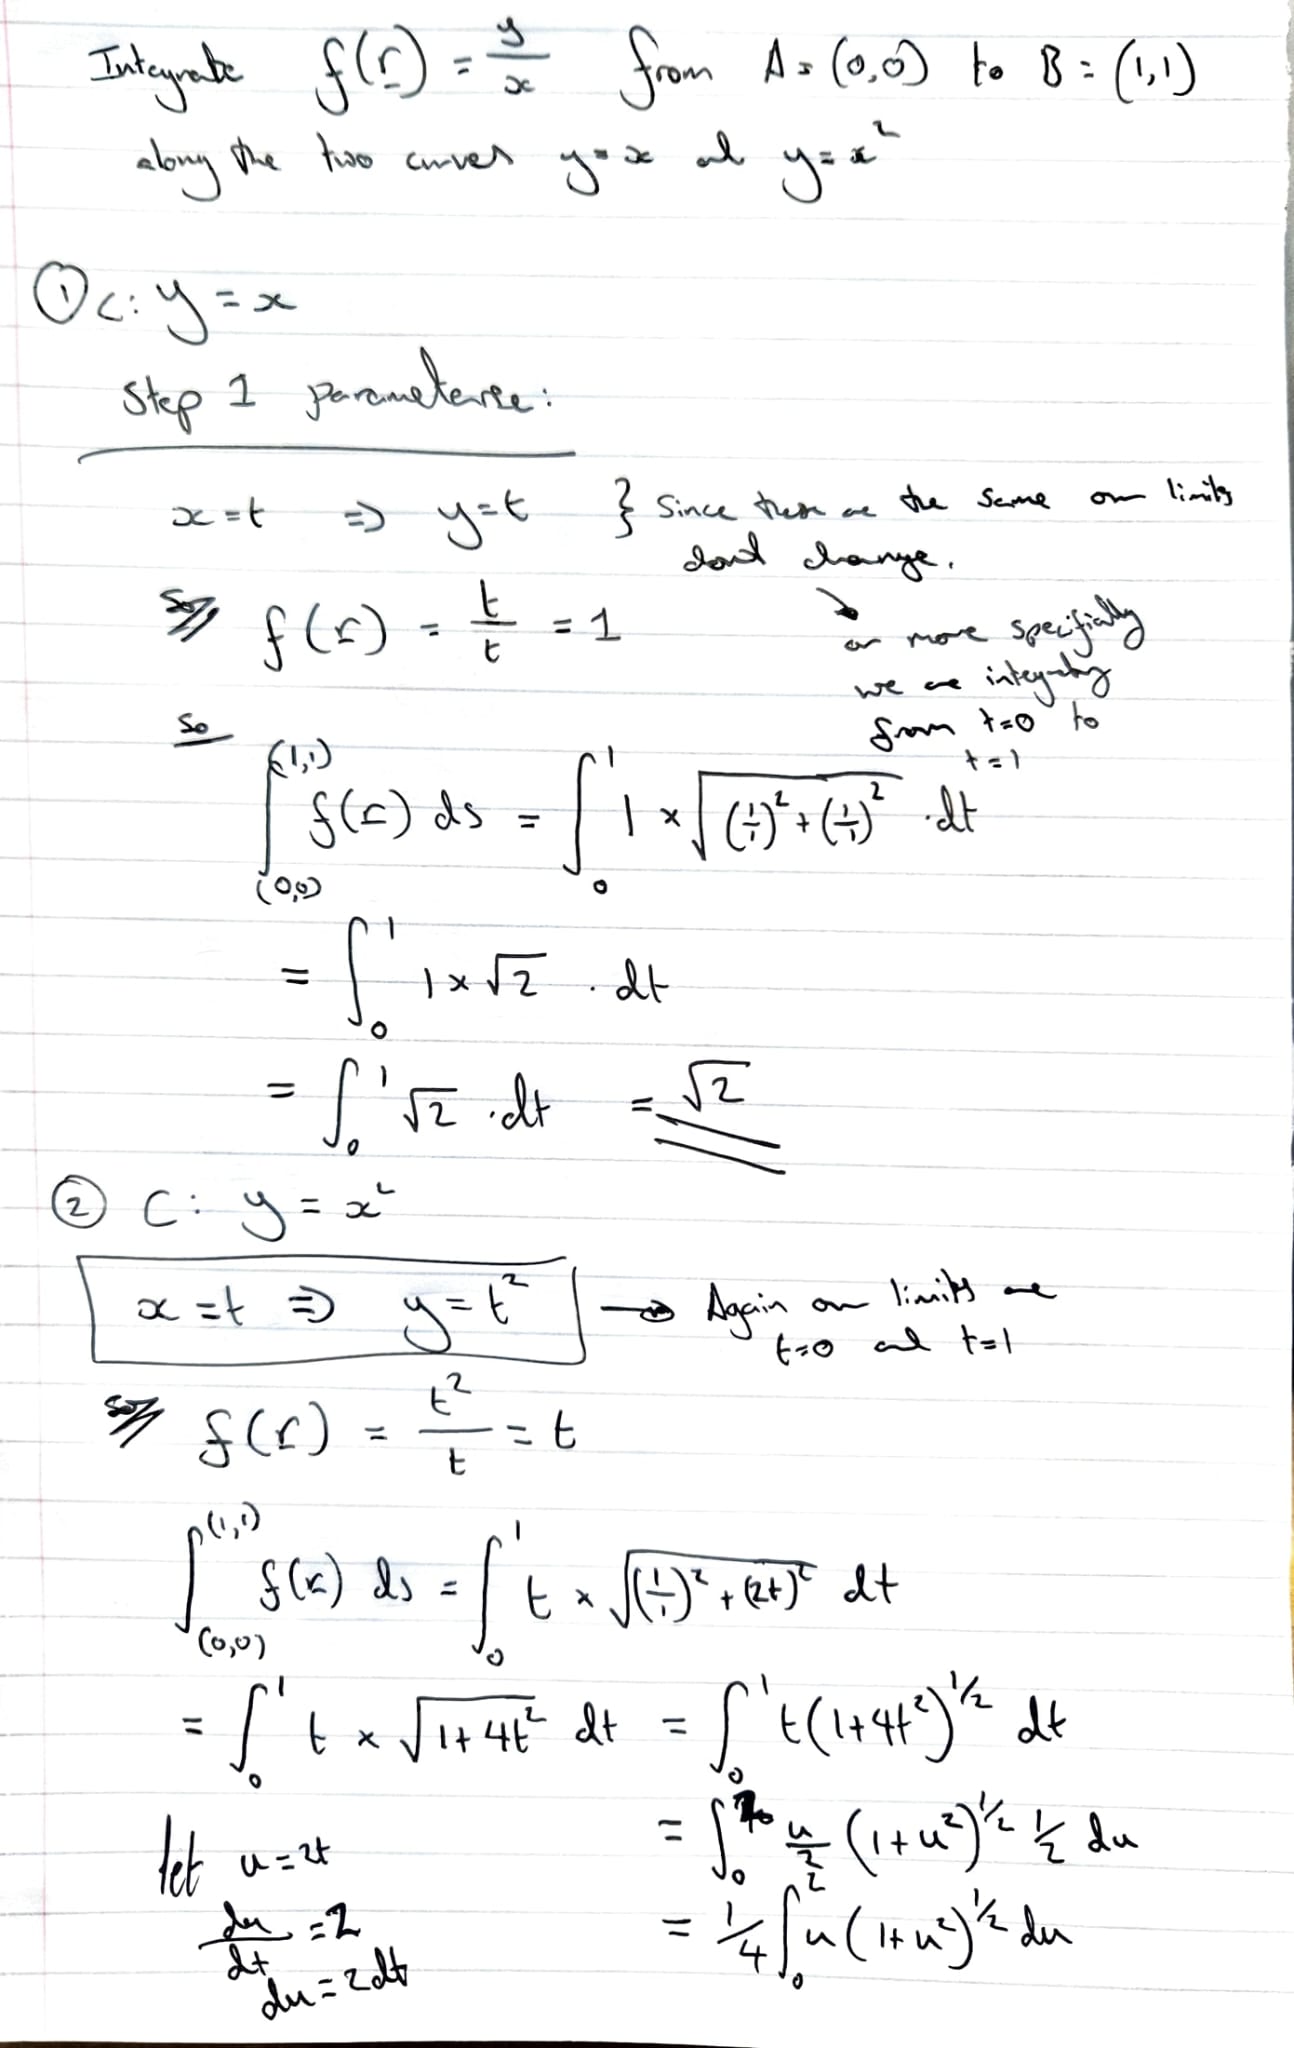 Integrate f(r) = y/x from A = (0,0) to B = (1,1)
along the two curves y = x and y = x²
① C: y = x
Step 1 parameterise:
x = t ⇒ y = t } Since these are the same our limits
dont change.
↘ or more specifially
we are integrating
from t=0 to
t=1
f(r) = t/t = 1
So
∫_(0,0)^(1,1) f(r) ds = ∫_0^1 1 × √((1/1)² + (1/1)²) · dt
= ∫_0^1 1 × √2 · dt
= ∫_0^1 √2 · dt = √2
② C: y = x²
x = t ⇒ y = t² → Again our limits are
t=0 and t=1
f(r) = t²/t = t
∫_(0,0)^(1,1) f(r) ds = ∫_0^1 t × √((1/1)² + (2t)²) dt
= ∫_0^1 t × √(1+4t²) dt = ∫_0^1 t(1+4t²)^1/2 dt
let u = 2t
= ∫_0 u/2 (1+u²)^1/2 1/2 du
du/dt = 2
= 1/4 ∫_0^2 u(1+u²)^1/2 du
du = 2dt